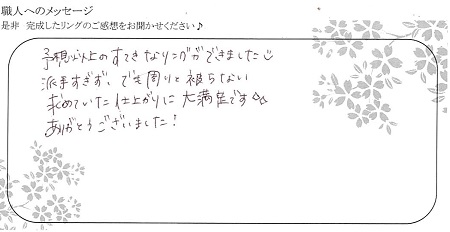 職人へのメッセージ
是非 完成したリングのご感想をお聞かせください♪
予想以上のすてきなリングができました
派手すぎず、でも周りと被らない
求めていた仕上がりに大満足です☆☆
ありがとうございました!